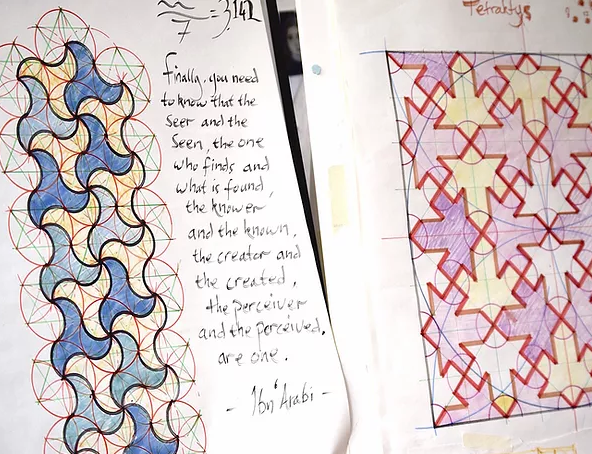 7 = 3,142
Finally, you need
to know that the
Seer and the
Seen, the one
who finds and
what is found,
the knower
and the known,
the creator and
the created,
the perceiver
and the perceived,
are one.
- Ibn 'Arabi -
Tetraktys